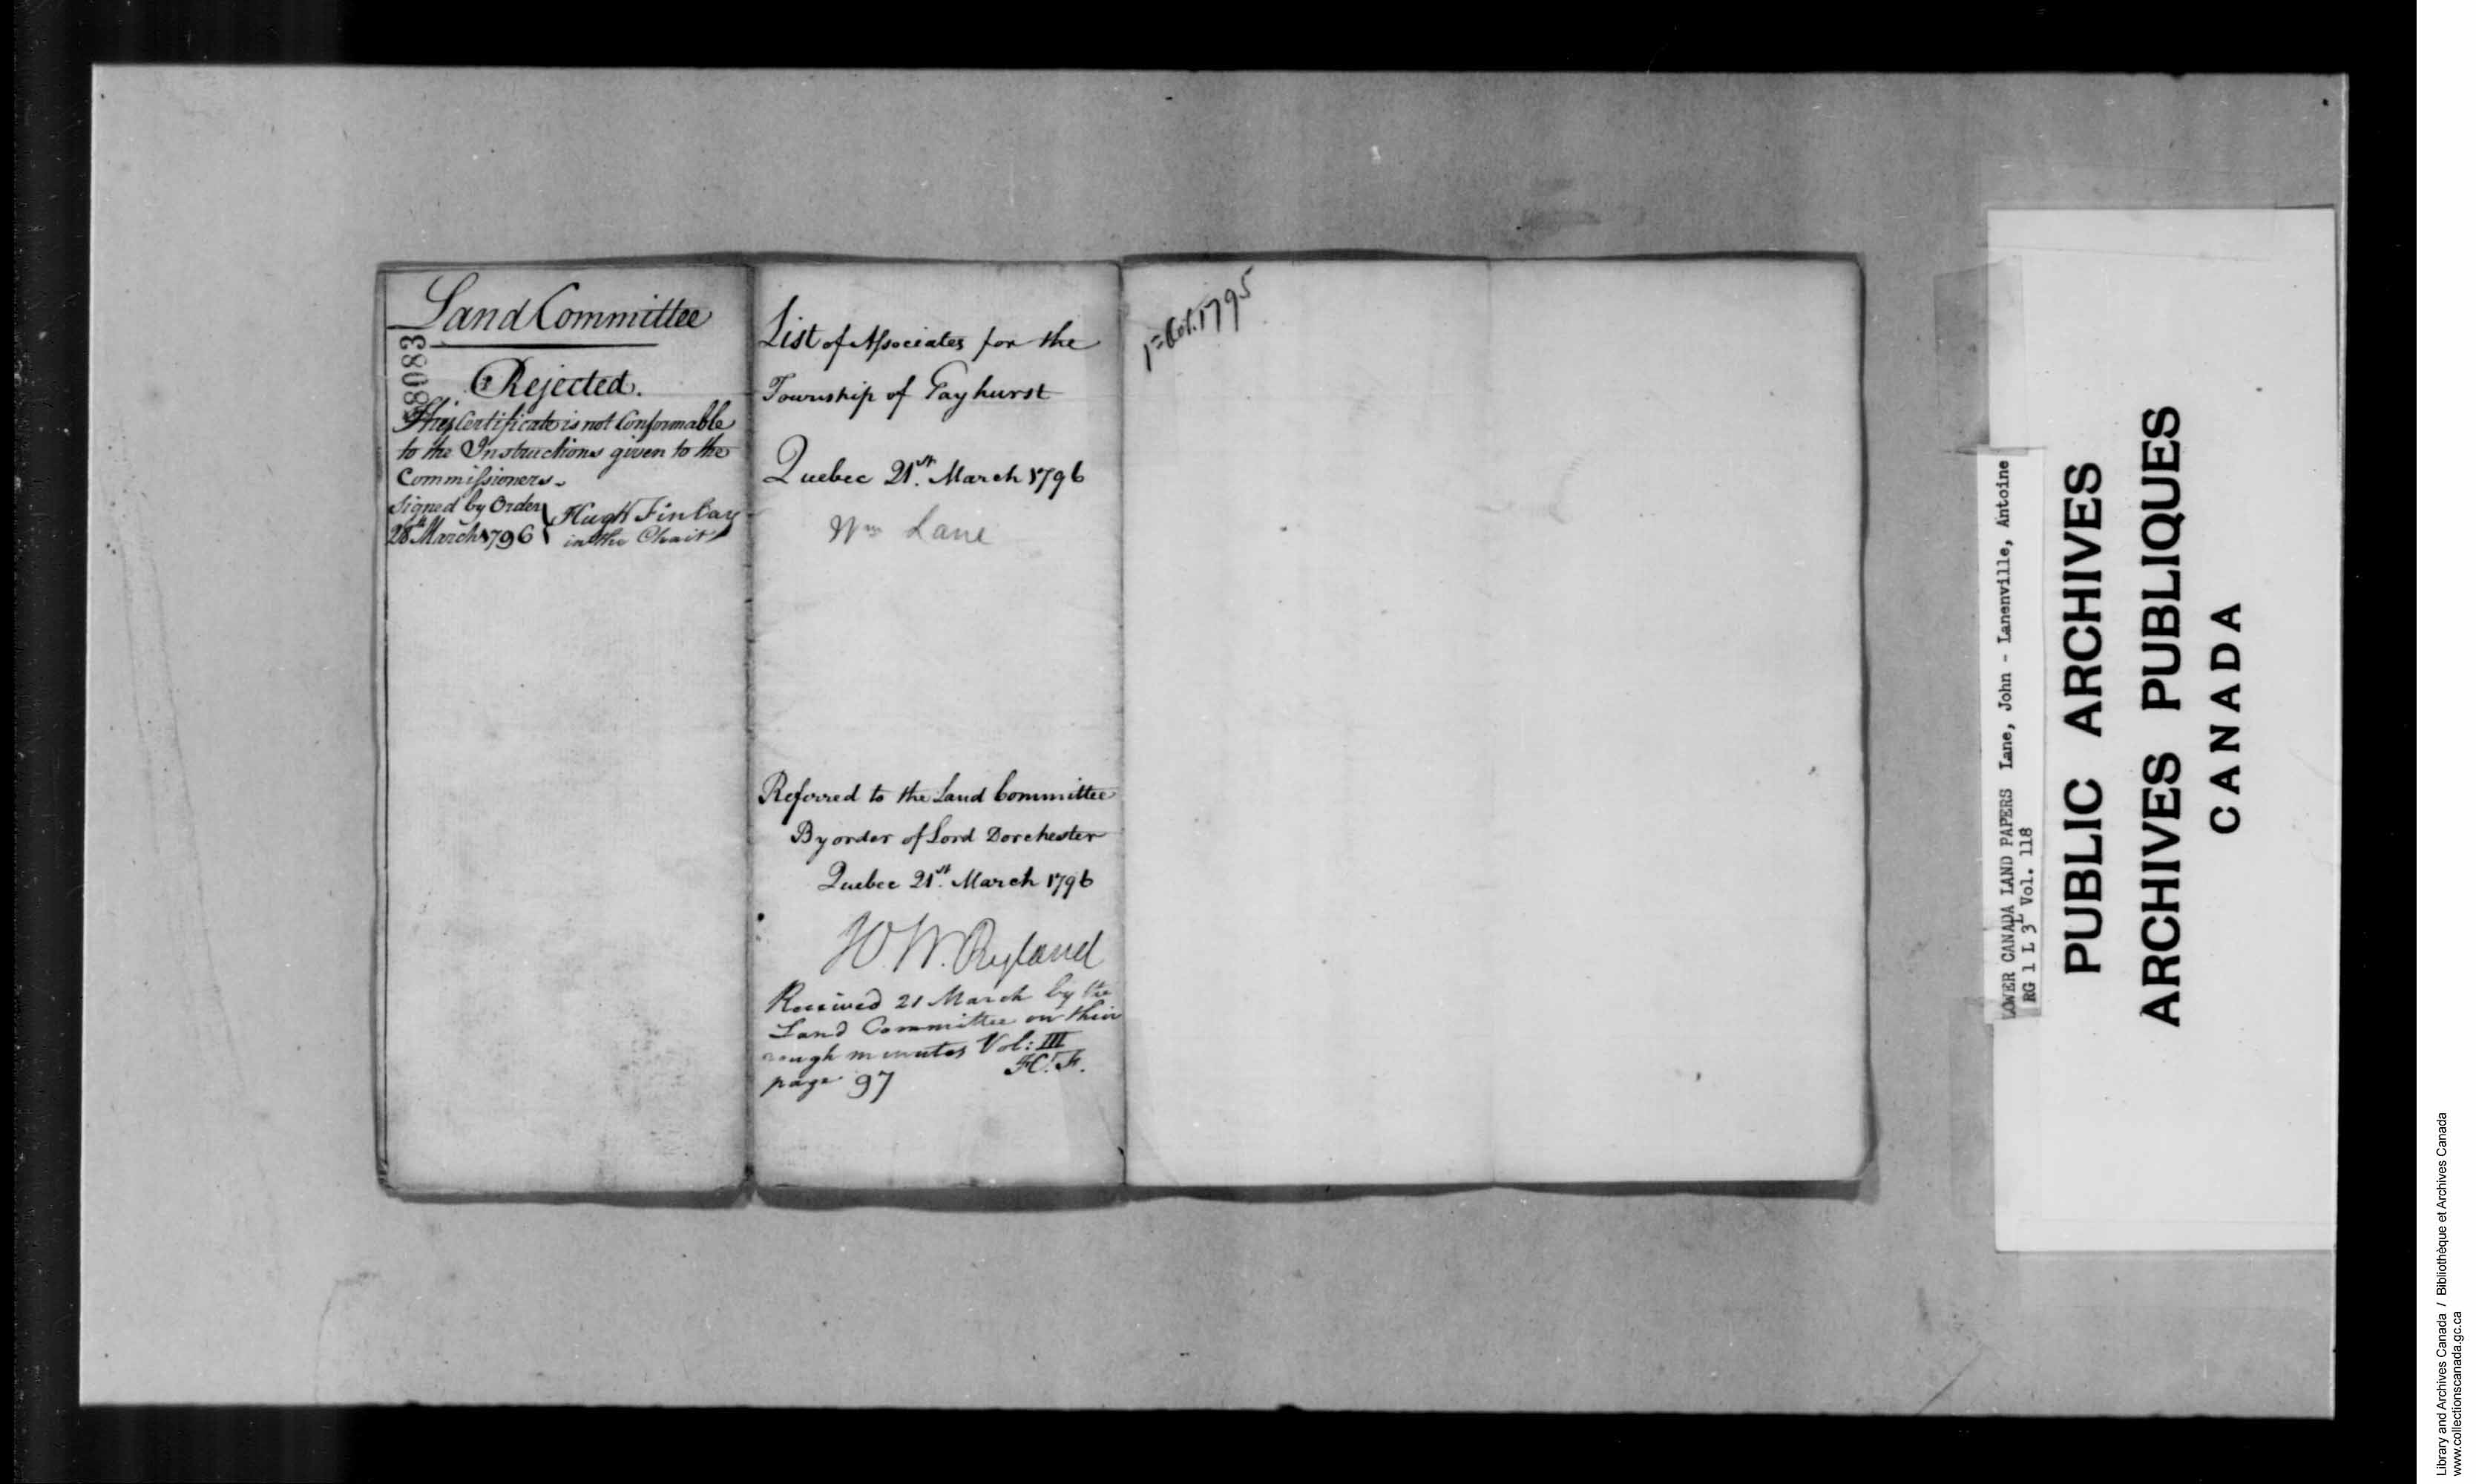 Land Committee
58083
Rejected.
This Certificate is not Conformable
to the Instructions given to the
Commissioners.
Signed by Order
28th March 1796
Hugh Finlay
in the Chair
List of Associates for the
Township of Gayhurst
Quebec 21st. March 1796
Wm Lane
Referred to the Land Committee
By order of Lord Dorchester
Quebec 21st. March 1796
H. W. Ryland
Received 21 March by the
Land Committee on their
rough minutes Vol: III
page 97 H. F.
1st Oct. 1795
LOWER CANADA LAND PAPERS Lane, John - Lanenville, Antoine
RG 1 L 3L Vol. 118
PUBLIC ARCHIVES
ARCHIVES PUBLIQUES
CANADA
Library and Archives Canada / Bibliothèque et Archives Canada
www.collectionscanada.gc.ca